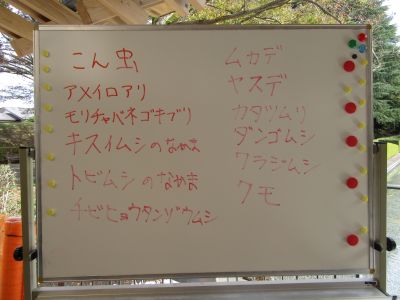 こん虫
アメイロアリ
モリチャバネゴキブリ
キスイムシのなかま
トビムシのなかま
チビヒョウタンゾウムシ
ムカデ
ヤスデ
カタツムリ
ダンゴムシ
ワラジムシ
クモ